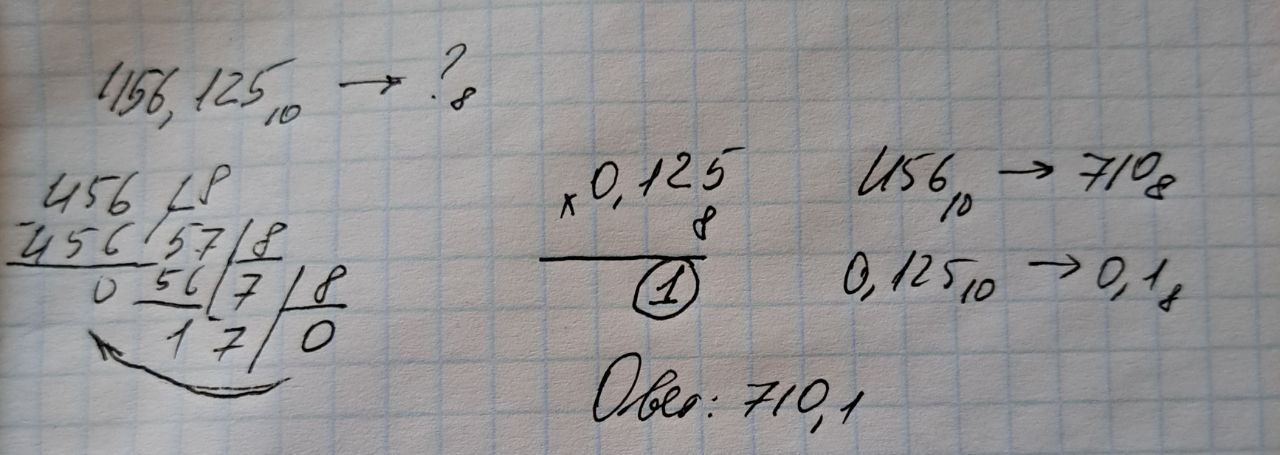 456,125₁₀ → ?₈
456 | 8
-456 | 57 | 8
0 56 | 7 | 8
1 7 | 0
× 0,125
8
1
456₁₀ → 710₈
0,125₁₀ → 0,1₈
Ответ: 710,1